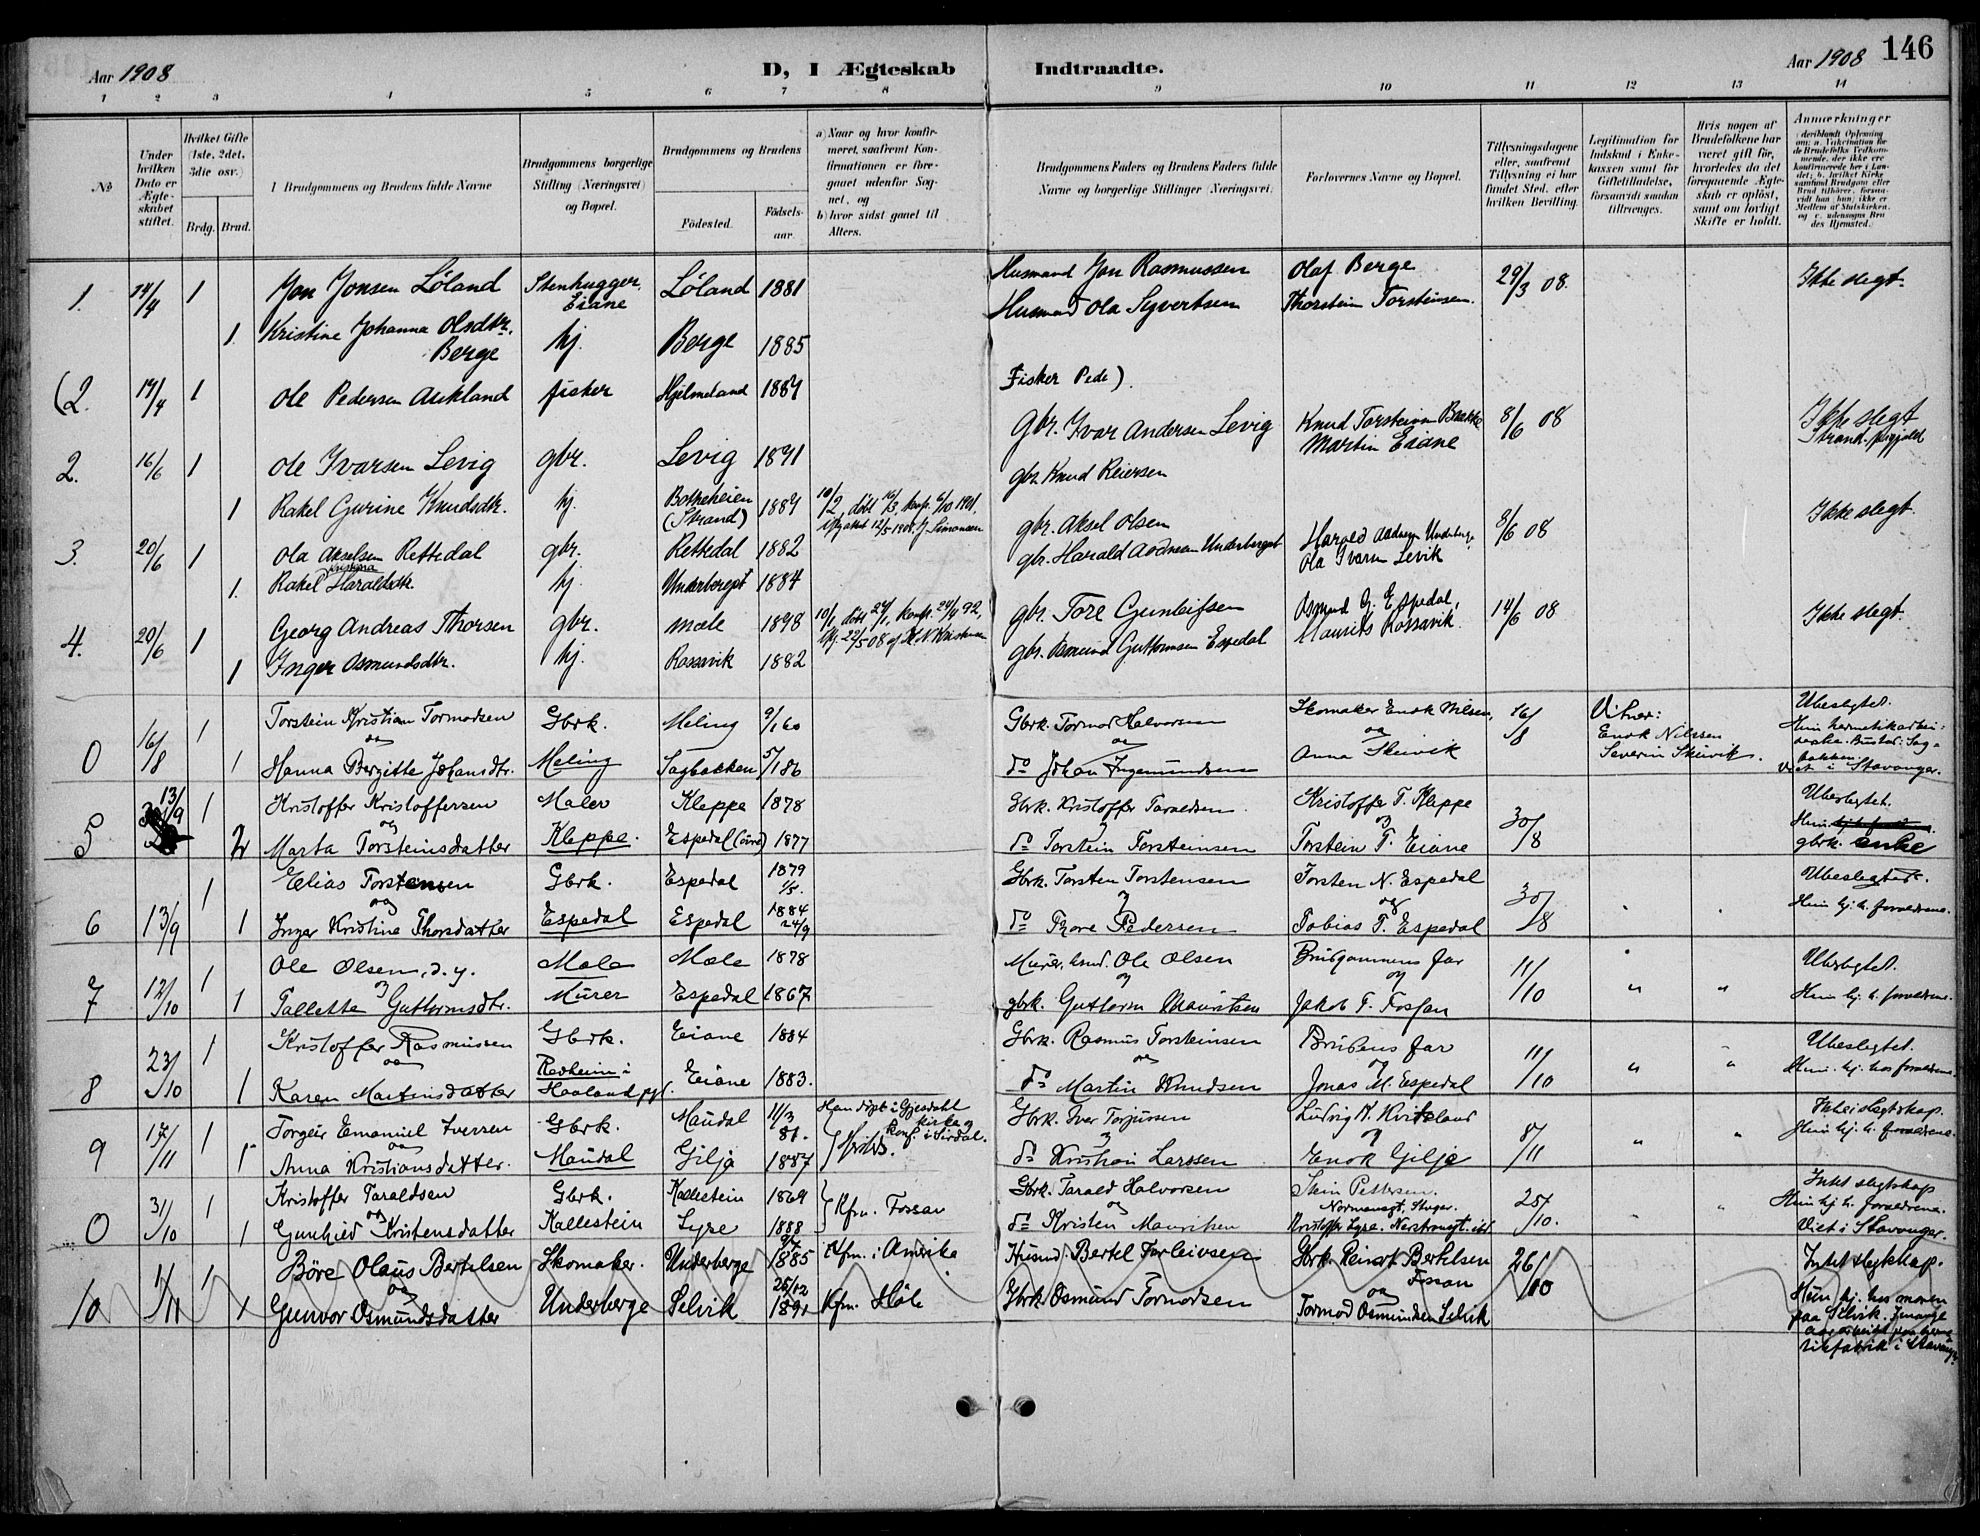 Aar 1908
D, I Ægteskab Indtraadte.
Aar 1908 146
1 2 3 4 5 6 7 8 9 10 11 12 13 14
No
Under hvilken Dato er Ægteskabet stiftet.
Hvilket Gifte (1ste, 2det, 3die osv.)
Brdg. Brud.
Brudgommens og Brudens fulde Navne
Brudgommens borgerlige Stilling (Næringsvei) og Bopæl.
Brudgommens og Brudens
Fødested.
Fødsels-aar.
a) Naar og hvor konfirmeret, saafremt Konfirmationen er foregaaet udenfor Sognet, og
b) hvor sidst gaaet til Alters.
Brudgommens Faders og Brudens Faders fulde Navne og borgerlige Stillinger (Næringsvei).
Forlovernes Navne og Bopæl.
Tillysningsdagene eller, saafremt Tillysning ei har fundet Sted, efter hvilken Bevilling.
Legitimation for Indskud i Enkekassen samt for Giftetilladelse, forsaavidt saadan tiltrænges.
Hvis nogen af Brudefolkene har været gift før, hvorledes da det foregaaende Ægteskab er opløst, samt om lovligt Skifte er holdt.
Anmærkninger
1. 14/4 1 Jon Jonsen Løland Stenhugger Eiane Løland 1881 Husmand Jon Rasmussen Olaf Berge 29/3 08. Ikke slegt.
1 Kristine Johanna Olsdtr. Berge hj. Berge 1885 Husmand Ola Syvertsen Thorstein Torsteinsen.
(2. 14/4 1 Ole Pedersen Aukland fisker Hjelmeland 1884 Fisker Pede)
2. 16/6 1 Ole Ivarsen Levig gbr. Levig 1871 Gbr. Ivar Andersen Levig Knud Torsteinsen Bakke 8/6 08 Ikke slegt
1 Rakel Gurine Knudsdtr. hj. Botneheien (Strand) 1884 10/2, døbt 16/3, konf. 6/10 1901 gbr Knud Reiersen Martin Eiane
3. 20/6 1 Ola Akselsen Rettedal gbr. Rettedal 1882 gbr. Aksel Olsen 8/6 08 Ikke slegt
1. Rakel Haraldsdtr. hj. Underberget 1884 gbr. Harald Underberget Ola Levik
4. 20/6 1 Georg Andreas Thorsen gbr. Mæle gbr. Tore Gunleifsen Osmund G. Espedal, 14/6 08 Ikke slegt
1 Inger Osmundsdtr. hj. Rossavik 1882 gbr. Osmund Guttormsen Espedal Maurits Rossavik
0 16/8 1 Torstein Kristian Tormodsen Gbrk. Meling 9/1 60 Gbrk. Tormod Halvorsen Skomaker Enok Nilsen, 16/8 Vitner: Ubeslegtet.
og
1 Hanna Bergitte Johansdtr. Meling Sagbakken 5/1 86 do Johan Ingemundsen Anna Skeivik Enok Nilssen Severin Skeivik. Viet i Stavanger.
5 13/9 1 Kristoffer Kristoffersen Maler Kleppe 1878 Gbrk. Kristoffer Taraldsen Kristoffer T. Kleppe 30/8 Ubeslegtet.
og
2 Marta Torsteinsdatter Kleppe. Espedal (øvre) 1877 do Torstein Torsteinsen Torstein T. Eiane gbrk. enke
6 13/9 1 Elias Torstensen Gbrk. Espedal 1879 1/5. Gbrk. Torsten Torstensen Torsten N. Espedal 30/8 Ubeslegtet.
og
1 Inger Kristine Thorsdatter Espedal Espedal 1884 24/9 do Thore Pedersen Tobias T. Espedal Hun hj. h. forældrene.
7 12/10 1 Ole Olsen, d. y. Mæle Mæle 1878 Murer, husm. Ole Olsen Brudgommens far 11/10 Ubeslegtet.
og
1 Tallette Guttormsdtr. Murer Espedal 1867 gbrk. Guttorm Mauritsen Jakob T. Fossan Hun hj. h. forældrene.
8 23/10 1 Kristoffer Rasmussen Gbrk. Eiane 1884 Gbrk. Rasmus Torsteinsen Brudens far 11/10 Ubeslegtet.
og
1 Karen Martinsdatter Redheim i Haaland pgd. Eiane 1883. do Martin Knudsen Jonas M. Espedal Hun hj. hos forældrene.
9 17/11 1 Torgeir Emanuel Iversen Gbrk. Maudal 11/3 81. Han døpt i Gjesdahl kirke og konf. i Sirdal. Gbrk. Iver Torjussen Ludvig Kvitaland 8/11 Hun hj. h. forældrene.
og
1 Anna Kristiansdatter. Maudal Gilja 1887 do Kristian Larssen Enok Gilje
0 31/10 1 Kristoffer Taraldsen Gbrk. Kallestein 1869 Kfm. Fossan Gbrk. Tarald Halvorsen Stein Pettersen. 25/10. Intet slegtskap
og
1 Gunhild Kristensdatter Kallestein Lyre 1888 do Kristen Mauritsen Kristoffer Lyre. Hun hj. h. forældrene. Viet i Stavanger.
10 1/11 1 Børe Olaus Bertelsen Skomaker. Underberge 1885 Kfm. i Amerika Husmd. Bertel Torleivsen Gbrk. Reinert Bertelsen Fossan 26/10 Intet slegtskap.
og
1 Gunvor Osmundsdatter Underberge Selvik 25/12 1891 Kfm. Høle Gbrk. Osmund Tormodsen Tormod Osmundsen Selvik Hun hj. hos moren paa Selvik.